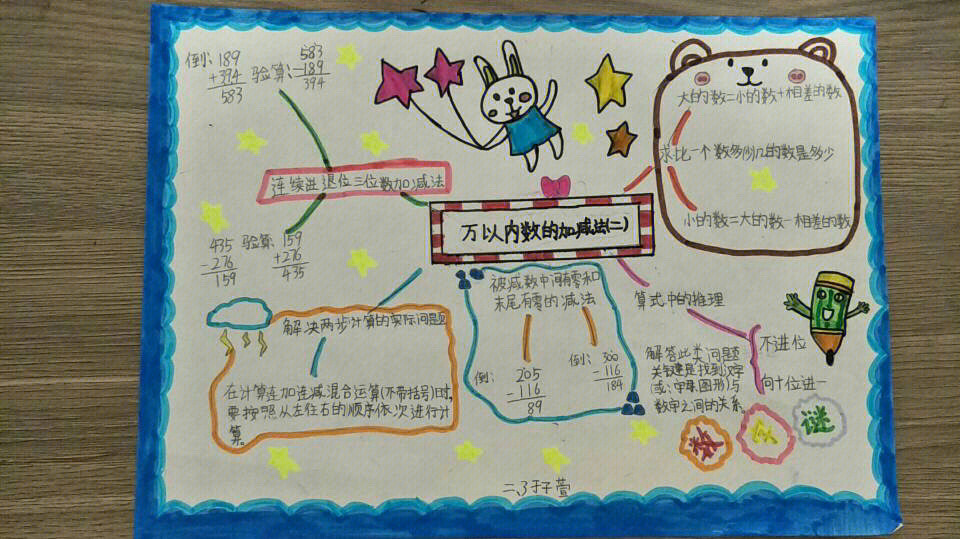 倒: 189
+394
583
验算: 583
-189
394
连续进退位三位数加减法
435
-276
159
验算: 159
+276
435
万以内数的加减法(二)
大的数=小的数+相差的数
求比一个数多(少)几的数是多少
小的数=大的数-相差的数
解决两步计算的实际问题
在计算连加连减混合运算(不带括号)时,
要按照从左往右的顺序依次进行计
算。
被减数中间有零和
末尾有零的减法
倒:
205
-116
89
倒: 300
-116
184
算式中的推理
不进位
向十位进一
解答此类问题
关键是找到汉字
(或:字母、图形)与
数字之间的关系。
数字谜
二、3 于子萱